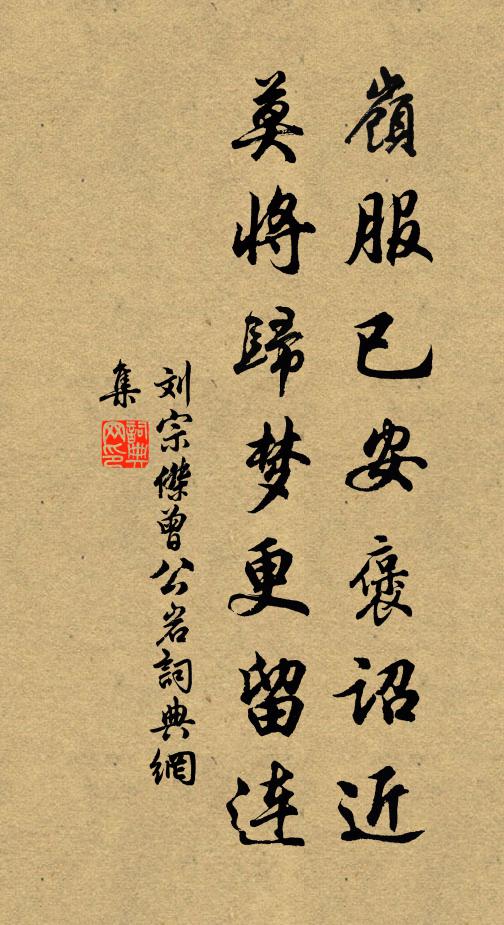 嶺服已安褒诏近
莫將歸梦更留连
刘宗傑曾公岩詞典網
集
詞典
网印